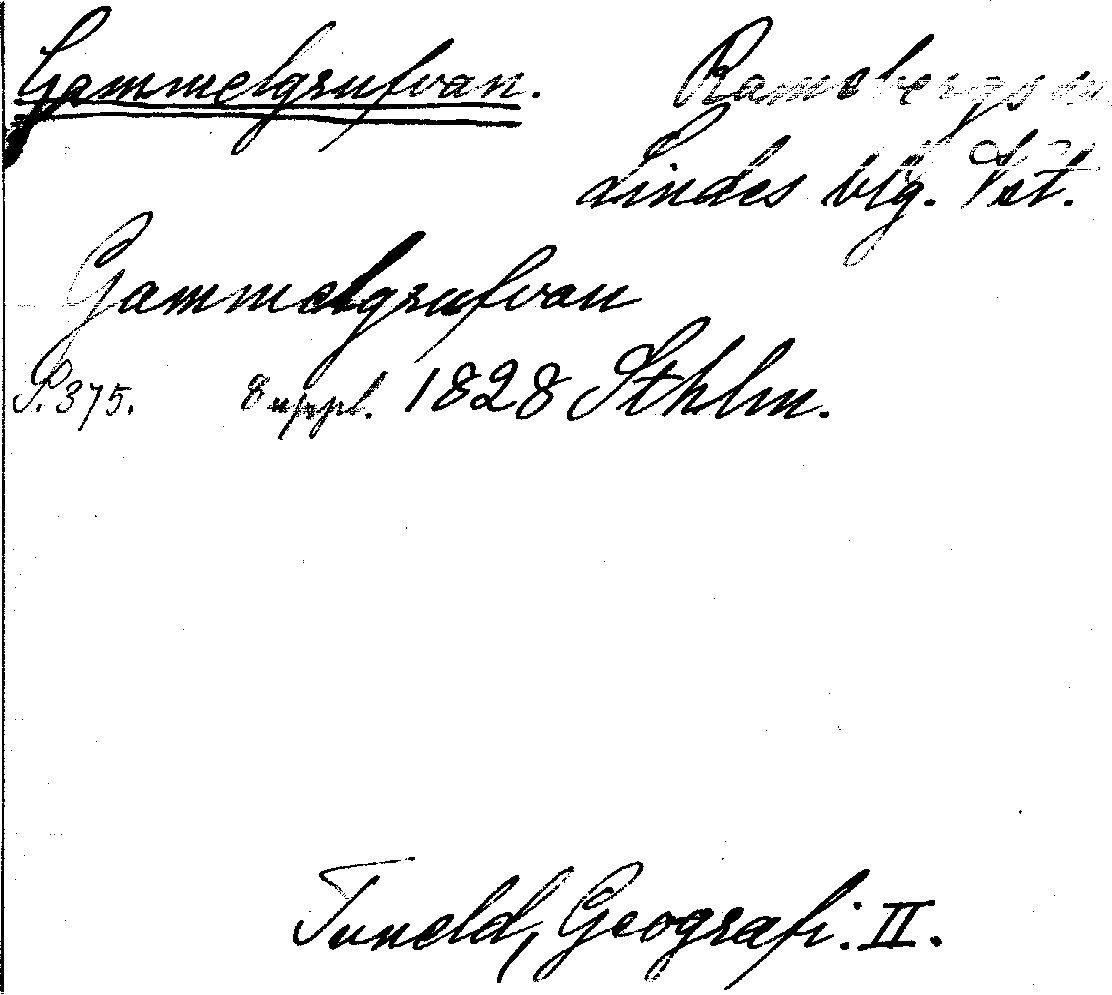 Gammelgrufvan. Ramsbergs sn.
Lindes blg. Vst.
Gammelgrufvan
P. 375. 8 uppl. 1828 Sthlm.
Tuneld, Geografi. II.